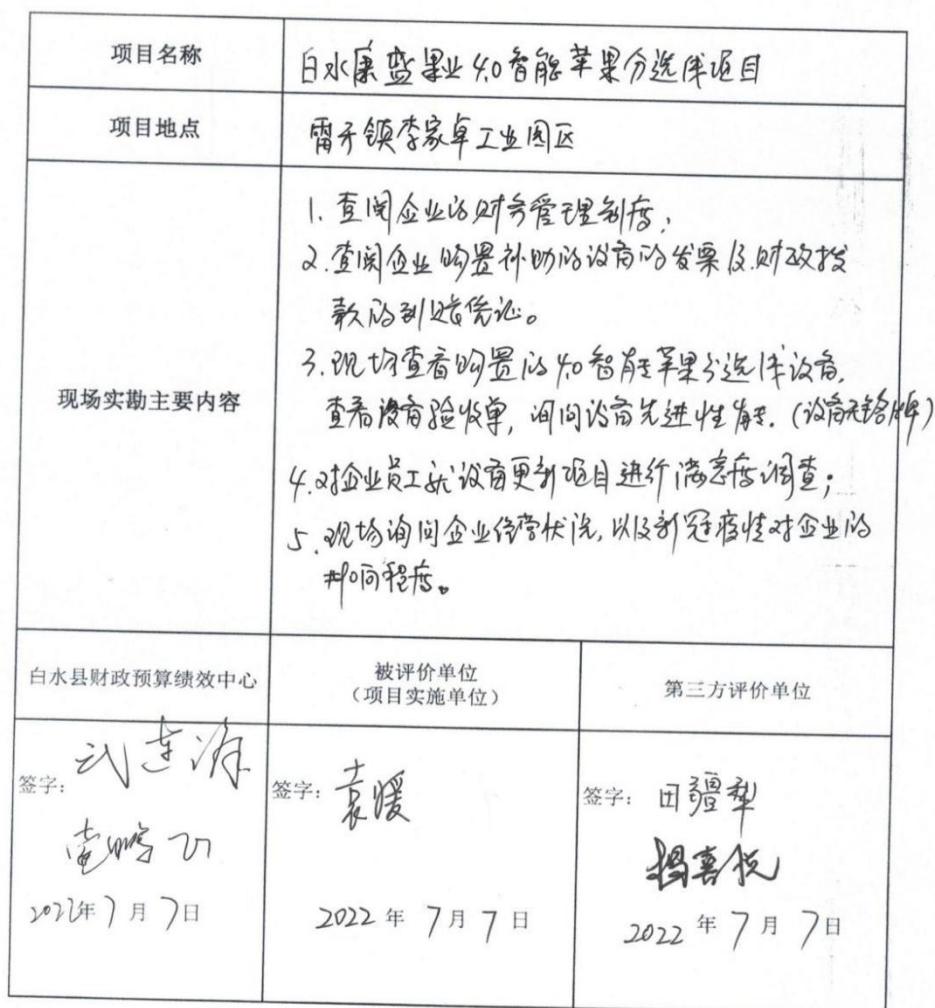 项目名称
白水康盛果业4.0智能苹果分选线项目
项目地点
雷牙镇李家卓工业园区
现场实勘主要内容
1. 查阅企业的财务管理制度;
2. 查阅企业购置补助的设备的发票及财政拨
款的到账凭证。
3. 现场查看购置的4.0智能苹果分选线设备,
查看设备验收单, 询问设备先进性能. (设备无铭牌)
4. 对企业员工就设备更新项目进行满意度调查;
5. 现场询问企业经营状况, 以及新冠疫情对企业的
影响程度。
白水县财政预算绩效中心
被评价单位
(项目实施单位)
第三方评价单位
签字:
签字: 袁媛
签字: 田疆犁
杨喜悦
2022年7月7日
2022年7月7日
2022年7月7日